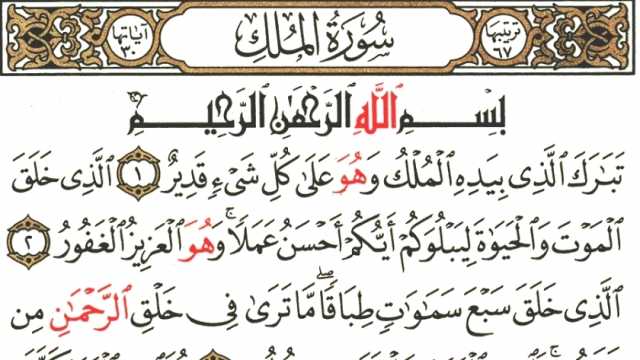 ترتيبها ٦٧ سُورَةُ الْمُلْكِ آياتها ٣٠
بِسْمِ اللَّهِ الرَّحْمَٰنِ الرَّحِيمِ
تَبَارَكَ ٱلَّذِى بِيَدِهِ ٱلْمُلْكُ وَهُوَ عَلَىٰ كُلِّ شَىْءٍ قَدِيرٌ ١ ٱلَّذِى خَلَقَ
ٱلْمَوْتَ وَٱلْحَيَوٰةَ لِيَبْلُوَكُمْ أَيُّكُمْ أَحْسَنُ عَمَلًا ۚ وَهُوَ ٱلْعَزِيزُ ٱلْغَفُورُ ٢
ٱلَّذِى خَلَقَ سَبْعَ سَمَٰوَٰتٍ طِبَاقًا ۖ مَّا تَرَىٰ فِى خَلْقِ ٱلرَّحْمَٰنِ مِن